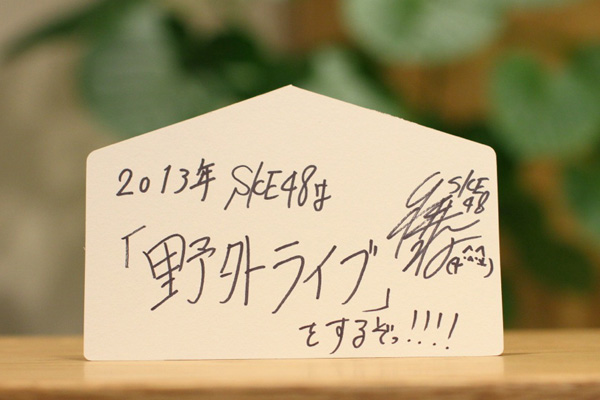 2013年 SKE48は
「野外ライブ」
をするぞっ!!!!
SKE
48